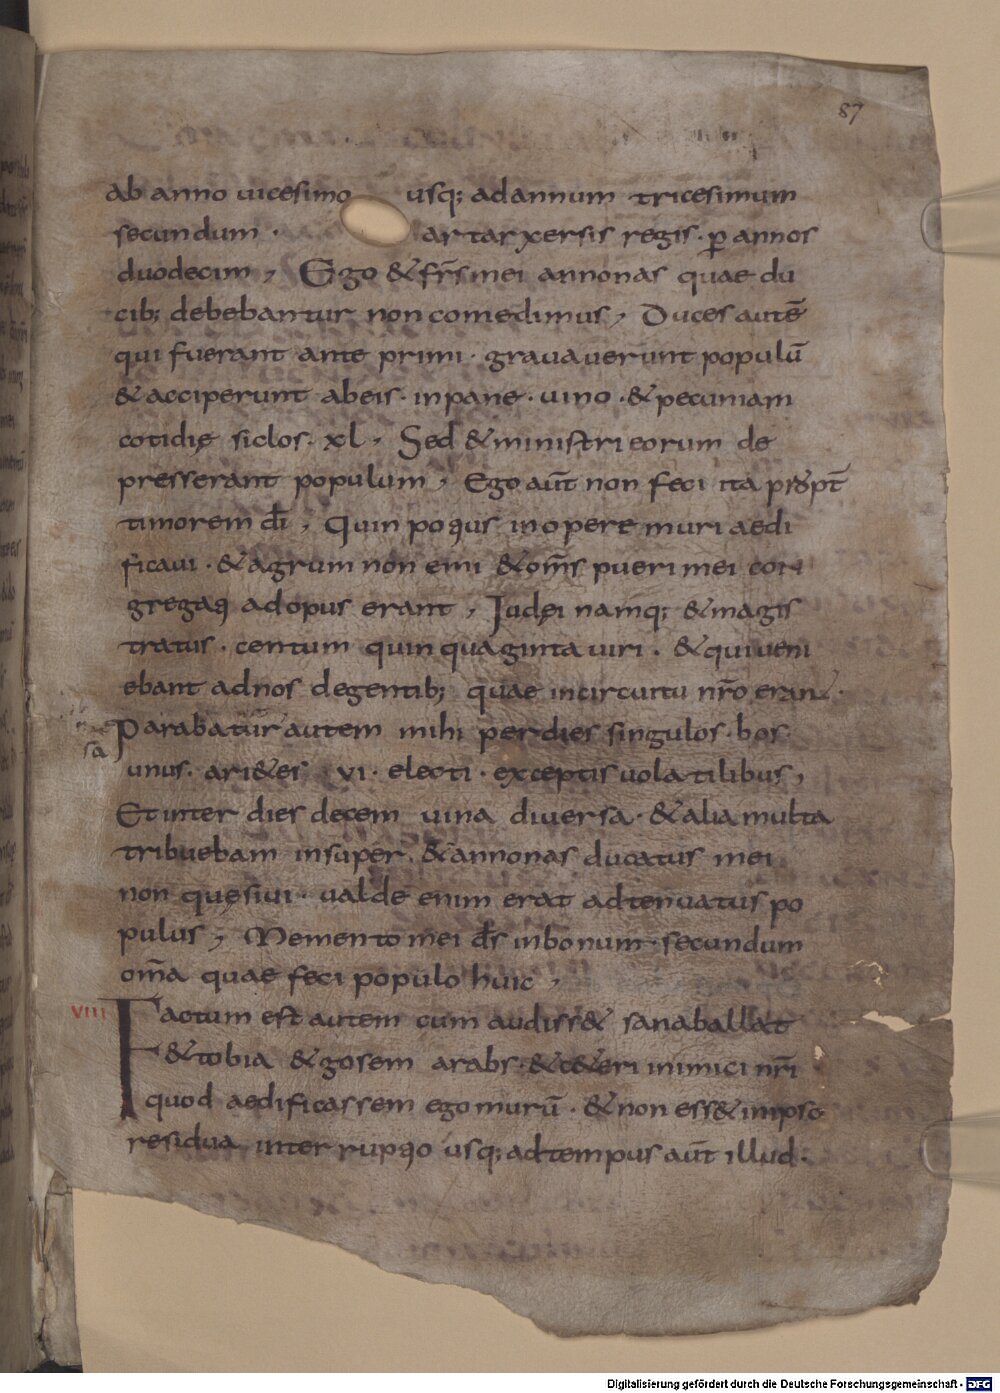 87
ab anno uicesimo usq; ad annum tricesimum
secundum · artarxersis regis · p̱ annos
duodecim, Ego & fr̄s mei annonas quae du
cib; debebantur non comedimus, Duces autē
qui fuerant ante primi · grauauerunt populū
& acciperunt ab eis · in pane · uino · & pecuniam
cotidię siclos · xl, Sed & ministri eorum de
presserant populum, Ego aūt non feci ita ꝓpt̄
timorem dī, Quin poꝯus in opere muri aedi
ficaui · & agrum non emi & om̄s pueri mei con
gregaꝯ ad opus erant, Judęi namq; & magis
tratus · centum quinquaginta uiri · & qui ueni
ebant ad nos de gentib; quae in circuitu nr̄o erant ·
Parabatur autem mihi per dies singulos · bos
sa
unus · ari&es VI · electi · exceptis uolatilibus,
Et inter dies decem uina diuersa · & alia multa
tribuebam insuper · & annonas ducatus mei
non quęsiui · ualde enim erat adtenuatus po
pulus, Memento mei d̄s in bonum · secundum
om̄a quae feci populo huic,
VIII Factum est autem cum audiss& sanaballat
& tobia & gosem arabs · & c&eri inimici nr̄i
quod aedificassem ego murū · & non ess& in ipso
residua interrupꝯo usq; ad tempus aūt illud ·
Digitalisierung gefördert durch die Deutsche Forschungsgemeinschaft - DFG